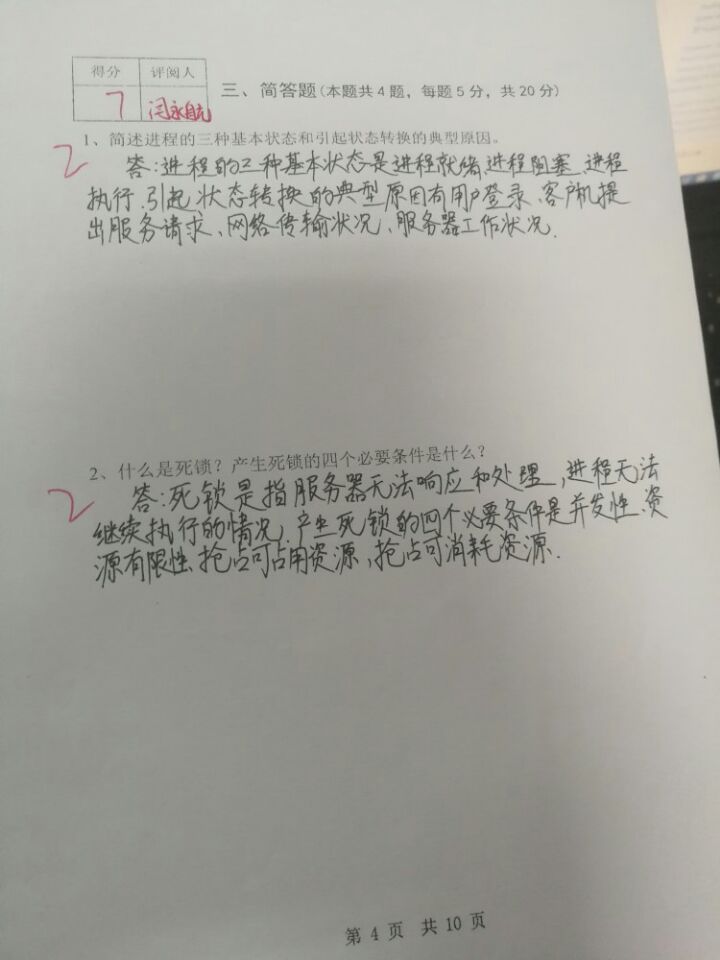 得分 评阅人
7 闫永自
三、简答题(本题共4题，每题5分，共20分)
1、简述进程的三种基本状态和引起状态转换的典型原因。
2
答:进程的三种基本状态是进程就绪、进程阻塞、进程
执行.引起状态转换的典型原因有用户登录、客户机提
出服务请求、网络传输状况、服务器工作状况.
2、什么是死锁？产生死锁的四个必要条件是什么？
2
答:死锁是指服务器无法响应和处理,进程无法
继续执行的情况.产生死锁的四个必要条件是并发性、资
源有限性、抢占可占用资源、抢占可消耗资源.
第 4 页 共 10 页